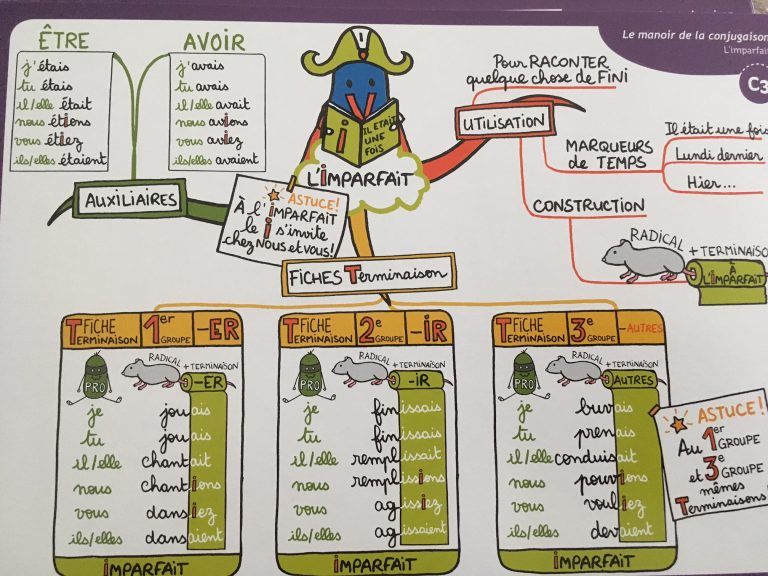 Le manoir de la conjugaison
L'imparfait
C3
ÊTRE
j'étais
tu étais
il/elle était
nous étions
vous étiez
ils/elles étaient
AVOIR
j'avais
tu avais
il/elle avait
nous avions
vous aviez
ils/elles avaient
AUXILIAIRES
i
IL ÉTAIT
UNE
FOIS
L'iMPARFAiT
ASTUCE!
À l'iMPARFAIT
le i s'invite
chez NOUS et VOUS!
UTILISATION
Pour RACONTER
quelque chose de FiNi
MARQUEURS
de TEMPS
Il était une fois
Lundi dernier
Hier...
CONSTRUCTION
RADICAL
+ TERMINAISON
À
L'IMPARFAIT
FICHES Terminaison
FICHE
TERMINAISON
1er
GROUPE
-ER
PRO
RADICAL
+ TERMINAISON
-ER
je jouais
tu jouais
il/elle chantait
nous chantions
vous dansiez
ils/elles dansaient
iMPARFAiT
FICHE
TERMINAISON
2e
GROUPE
-iR
PRO
RADICAL
+ TERMINAISON
-iR
je finissais
tu finissais
il/elle remplissait
nous remplissions
vous agissiez
ils/elles agissaient
iMPARFAiT
FICHE
TERMINAISON
3e
GROUPE
-AUTRES
PRO
RADICAL
+ TERMINAISON
AUTRES
je buvais
tu prenais
il/elle conduisait
nous pouvions
vous vouliez
ils/elles devaient
iMPARFAiT
ASTUCE!
Au 1er
GROUPE
et 3e
GROUPE
mêmes
Terminaisons!